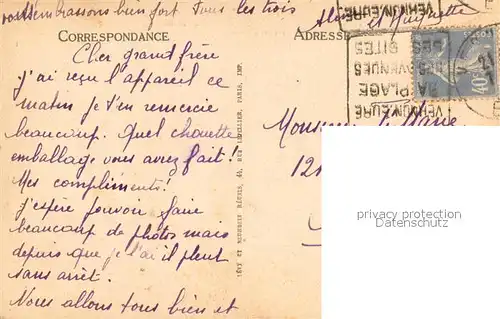 vous embrassons bien fort Tous les trois
CORRESPONDANCE
Cher grand frère
j'ai reçu l'appareil ce
matin je t'en remercie
beaucoup. Quel chouette
emballage vous avez fait!
Mes compliments!
j'espère pouvoir faire
beaucoup de photos mais
depuis que je l'ai il pleut
sans arrêt.
Nous allons tous bien et
LÉVY ET NEURDEIN RÉUNIS, 44, RUE LETELLIER, PARIS, IMP.
et
ADRESSE
VERNON.EURE
SA PLAGE
SES AVENUES
SES SITES
VERNON.EURE
POSTES
40c
Monsieur
12
privacy protection
watermark